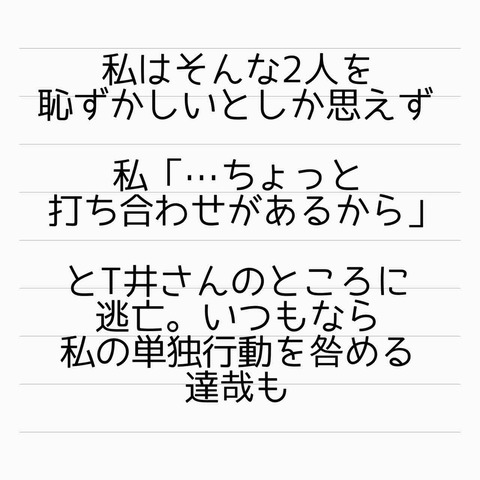 私はそんな2人を
恥ずかしいとしか思えず
私「…ちょっと
打ち合わせがあるから」
とT井さんのところに
逃亡。いつもなら
私の単独行動を咎める
達哉も